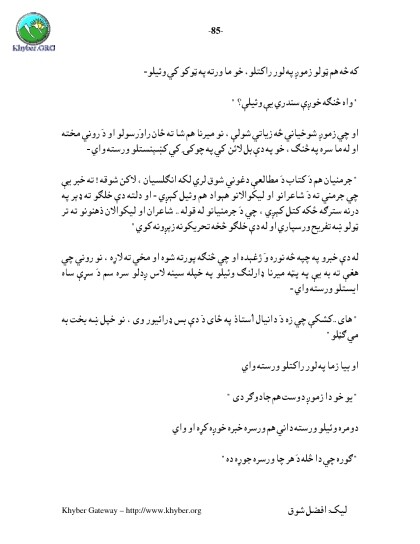 -85-
Khyber.ORG
که څه هم ټولو زموږ په لور راکتلو، خو ما ورته په ټوکو کې وئيلو-
" واه څنګه خوږې سندرې يې وئيلې؟ "
او چې زموږ شوخيانې څه زياتې شولې ، نو ميرنا هم شا ته ځان راورسولو او د رونې مخته
او له ما سره په څنګ ، خو په دې بل لائن کې په چوکۍ کې کښېنستلو ورسته واې -
" جرمنيان هم د کتاب د مطالعې دغونې شوق لري لکه انګلسيان ، لاکن شوقه ! ته خبر يې
چې جرمنې ته د شاعرانو او ليکوالانو هېواد هم وئيل کېږي - او دلته دې خلګو ته ډېر په
درنه سترګه ځکه کتل کېږي ، چې د جرمنيانو له قوله .. شاعران او ليکوالان ذهنونو ته تر
ټولو ښه تفريح ورسپاري او له دې خلګو څخه تحريکونه زېږونه کوي "
له دې خبرو په چپه څه نوره وَژغېده او چې څنګه پورته شوه او مخې ته لاړه ، نو رونې چې
هغې ته به يې په پټه ميرنا ډارلنګ وئيلو په خپله سينه لاس ږدلو سره سم د سړې ساه
ايستلو ورسته واې -
" هاى .کشکې چې زه د دانيال اُستاذ په ځاى د دې بس ډرائيور وى ، نو خپل ښه بخت به
مې ګڼلو "
او بيا زما په لور راکتلو ورسته واې
" يو خو دا زموږ دوست هم جادوګر دى "
دومره وئيلو ورسته دانې هم ورسره خبره خوږه کړه او واې
" ګوره چې دا څله د هر چا ورسره جوړه ده "
Khyber Gateway – http://www.khyber.org
ليک: افضل شوق